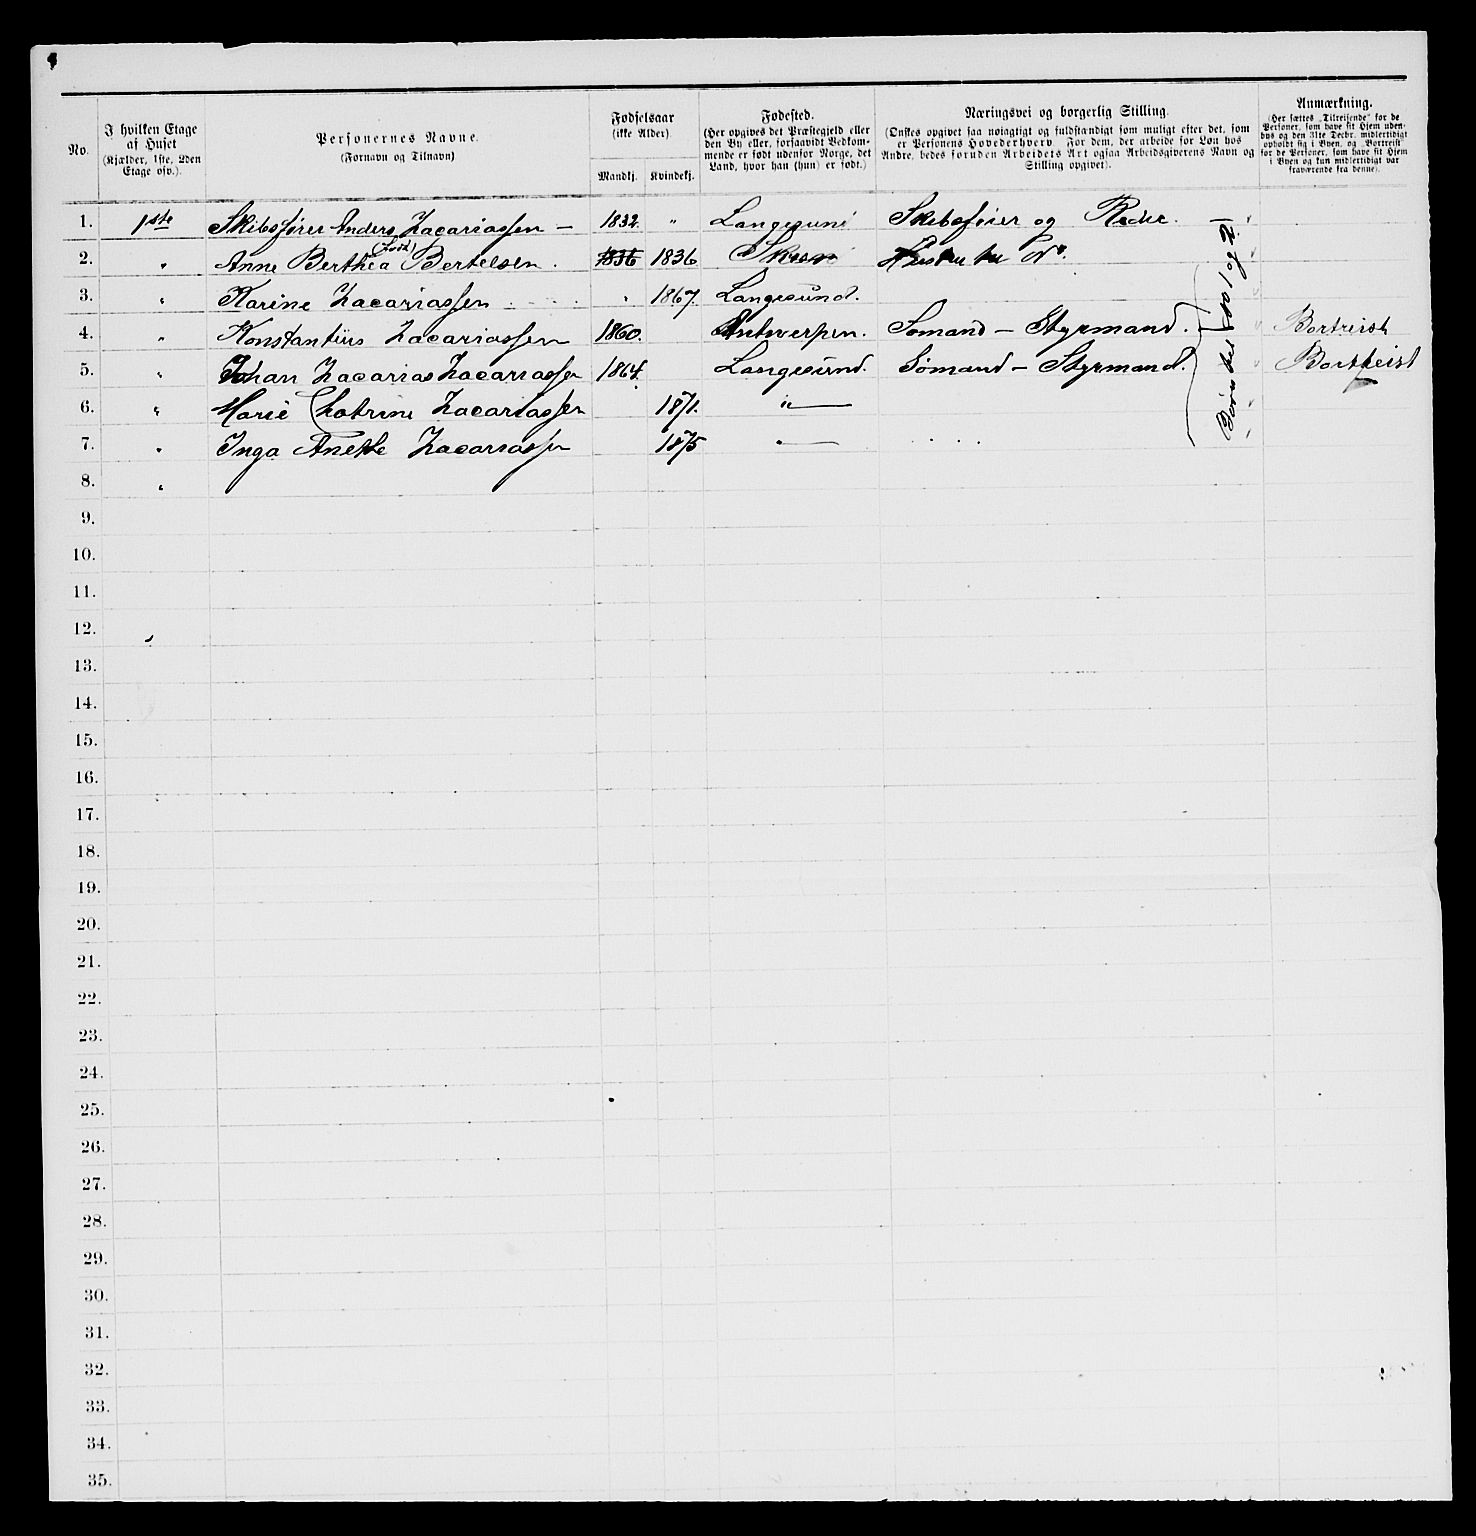 No.
I hvilken Etage af Huset (Kjælder, 1ste, 2den Etage osv.).
Personernes Navne. (Fornavn og Tilnavn)
Fødselsaar (ikke Alder)
Mandkj. Kvindekj.
Fødested. (Her opgives det Præstegjeld eller den By eller, forsaavidt Vedkommende er født udenfor Norge, det Land, hvor han (hun) er født.)
Næringsvei og borgerlig Stilling. (Ønskes opgivet saa nøiagtigt og fuldstændigt som muligt efter det, som er Personens Hovederhverv. For dem, der arbeide for Løn hos Andre, bedes foruden Arbeidets Art ogsaa Arbeidsgiverens Navn og Stilling opgivet).
Anmærkning. (Her sættes „Tilreisende" for de Personer, som have sit Hjem udenbys og den 31te Decbr. midlertidigt opholdt sig i Byen, og „Bortreist" for de Personer, som have sit Hjem i Byen og kun midlertidigt var fraværende fra denne).
1. 1ste Skibsfører Anders Zacariassen — 1832 " Langesund Skibsfører og Reder. —
2. " Anne Berthea (født) Bertelsen. 1836 1836 Do.
3. " Karine Zacariassen " 1867 Langesund.
4. " Konstantius Zacariassen 1860. Antwerpen. Sømand — Styrmand. Bortreist
5. " Johan Zacarias Zacariassen 1864. Langesund. Sømand — Styrmand. Bortreist
6. " Marie Chatrine Zacariassen 1871. " —
7. " Inga Anette Zacariassen 1875 " —
Børn til No 1 og 2.
8. "
9.
10.
11.
12.
13.
14.
15.
16.
17.
18.
19.
20.
21.
22.
23.
24.
25.
26.
27.
28.
29.
30.
31.
32.
33.
34.
35.